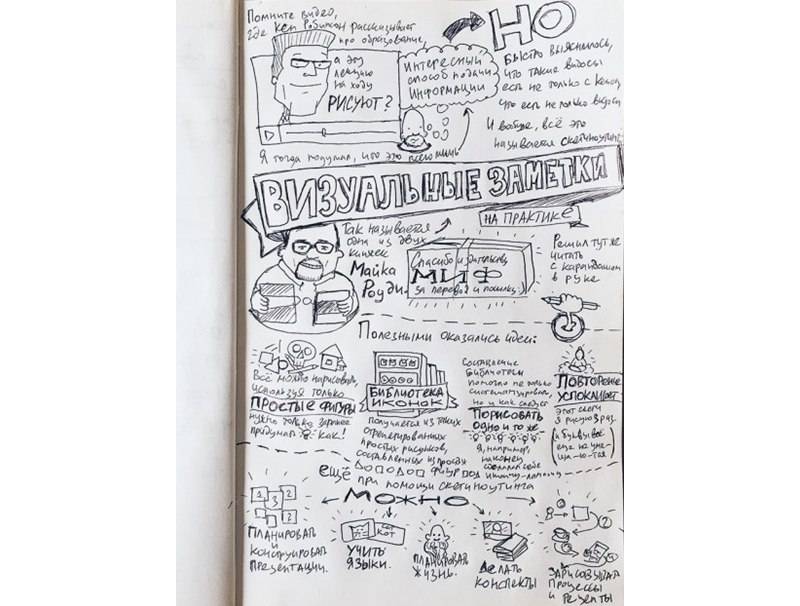 Помните видео,
где Кен Робинсон рассказывает
про образование,
а эту
лекцию
на ходу
РИСУЮТ?
Я тогда подумал, что это всего лишь
ИНТЕРЕСНЫЙ
СПОСОБ ПОДАЧИ
ИНФОРМАЦИИ
НО
БЫСТРО ВЫЯСНИЛОСЬ,
что такие видосы
есть не только с Кеном,
что есть не только видосы
И вообще, всё это
называется скетчноутинг
ВИЗУАЛЬНЫЕ ЗАМЕТКИ
НА ПРАКТИКЕ
Так называется
одна из двух
книжек
Майка
Роуди
Спасибо издательству
МИФ
за перевод и посылку
Решил тут же
читать
с карандашом
в руке
Полезными оказались идеи:
Всё можно нарисовать,
используя только
ПРОСТЫЕ ФИГУРЫ
нужно только заранее
придумать как!
БИБЛИОТЕКА
ИКОНОК
получается из таких
отрепетированных
простых рисунков,
составленных из простых
фигур
Составление
библиотеки
помогло не только
систематизировать,
но и как следует
ПОРИСОВАТЬ
одно и то же
Я, например,
наконец
сделал себе
иконку-лампочку
ПОВТОРЕНИЕ
УСПОКАИВАЕТ
этот скетч
я рисую 3 раз
(и буквы всё
еще не уме-
ща-ю-тся
ЕЩЁ
при помощи скетчноутинга
МОЖНО
1 2
3
ПЛАНИРОВАТЬ
И
КОНСТРУИРОВАТЬ
ПРЕЗЕНТАЦИИ.
КОТ
УЧИТЬ
ЯЗЫКИ.
ПЛАНИРОВАТЬ
ЖИЗНЬ.
ДЕЛАТЬ
КОНСПЕКТЫ
2
ЗАРИСОВЫВАТЬ
ПРОЦЕССЫ
И РЕЦЕПТЫ